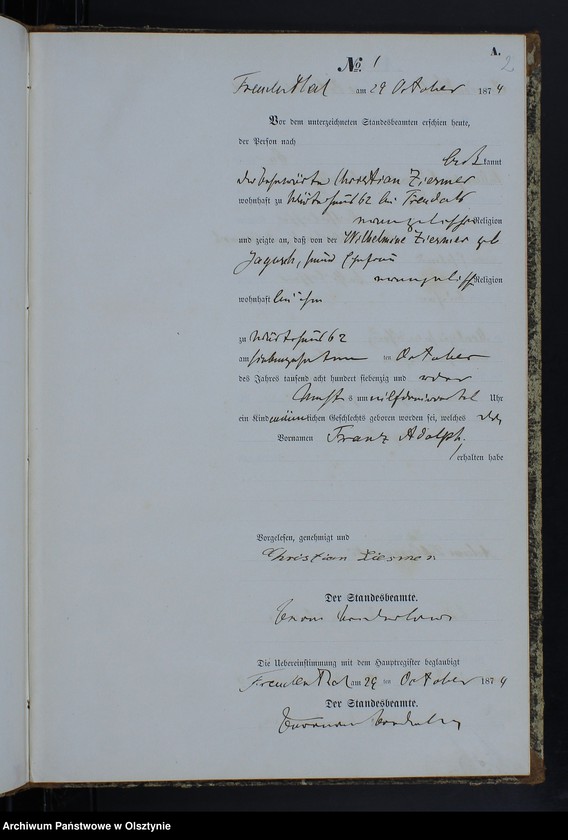 A.
2
No. 1
Freudenthal am 29 October 1874
Vor dem unterzeichneten Standesbeamten erschien heute,
der Person nach
kannt
der Bahnwärter Christian Ziesmer
wohnhaft zu Wärterhaus 62 bei
evangelischer Religion
und zeigte an, daß von der Wilhelmine Ziesmer geb
Jagusch, seine Ehefrau
evangelischer Religion
wohnhaft bei ihm
zu Wärterhaus 62
am siebenzehnten ten October
des Jahres tausend acht hundert siebenzig und vier
Nachts um Uhr
ein Kind männlichen Geschlechts geboren worden sei, welches die
Vornamen Franz Adolph.
erhalten habe
Vorgelesen, genehmigt und
Christian Ziesmer
Der Standesbeamte.
Die Uebereinstimmung mit dem Hauptregister beglaubigt
Freudenthal am 29 ten October 1874
Der Standesbeamte.
Archiwum Państwowe w Olsztynie